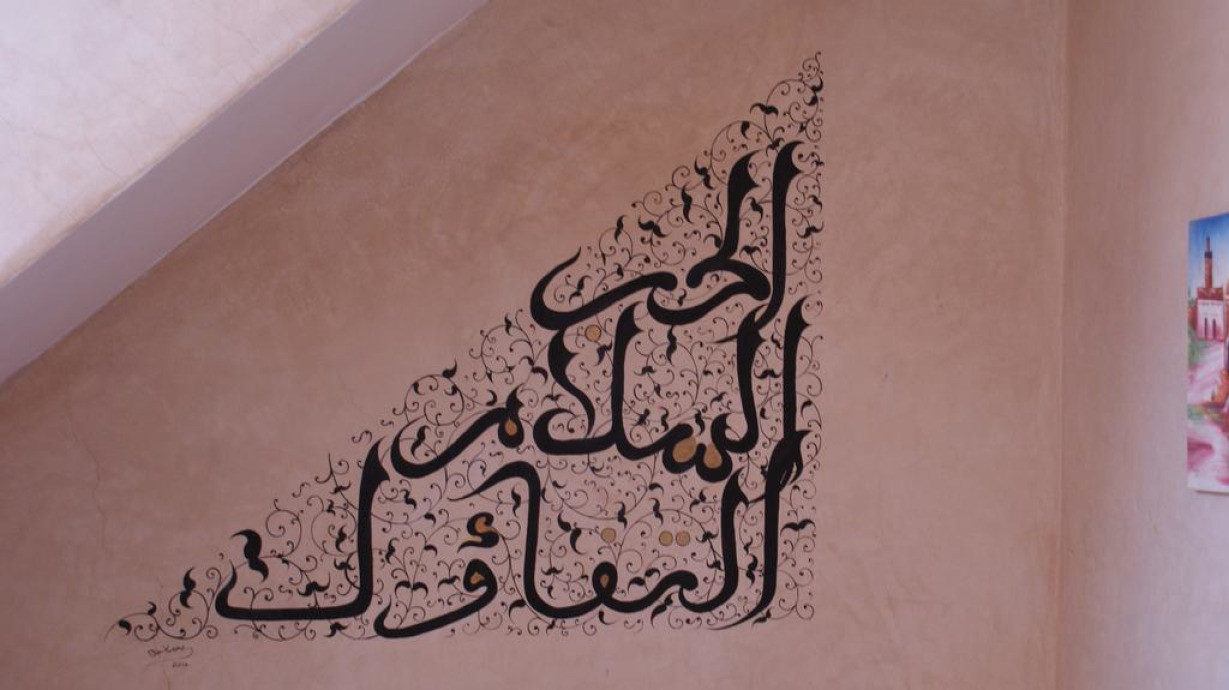 الحب
السلام
التفاؤل